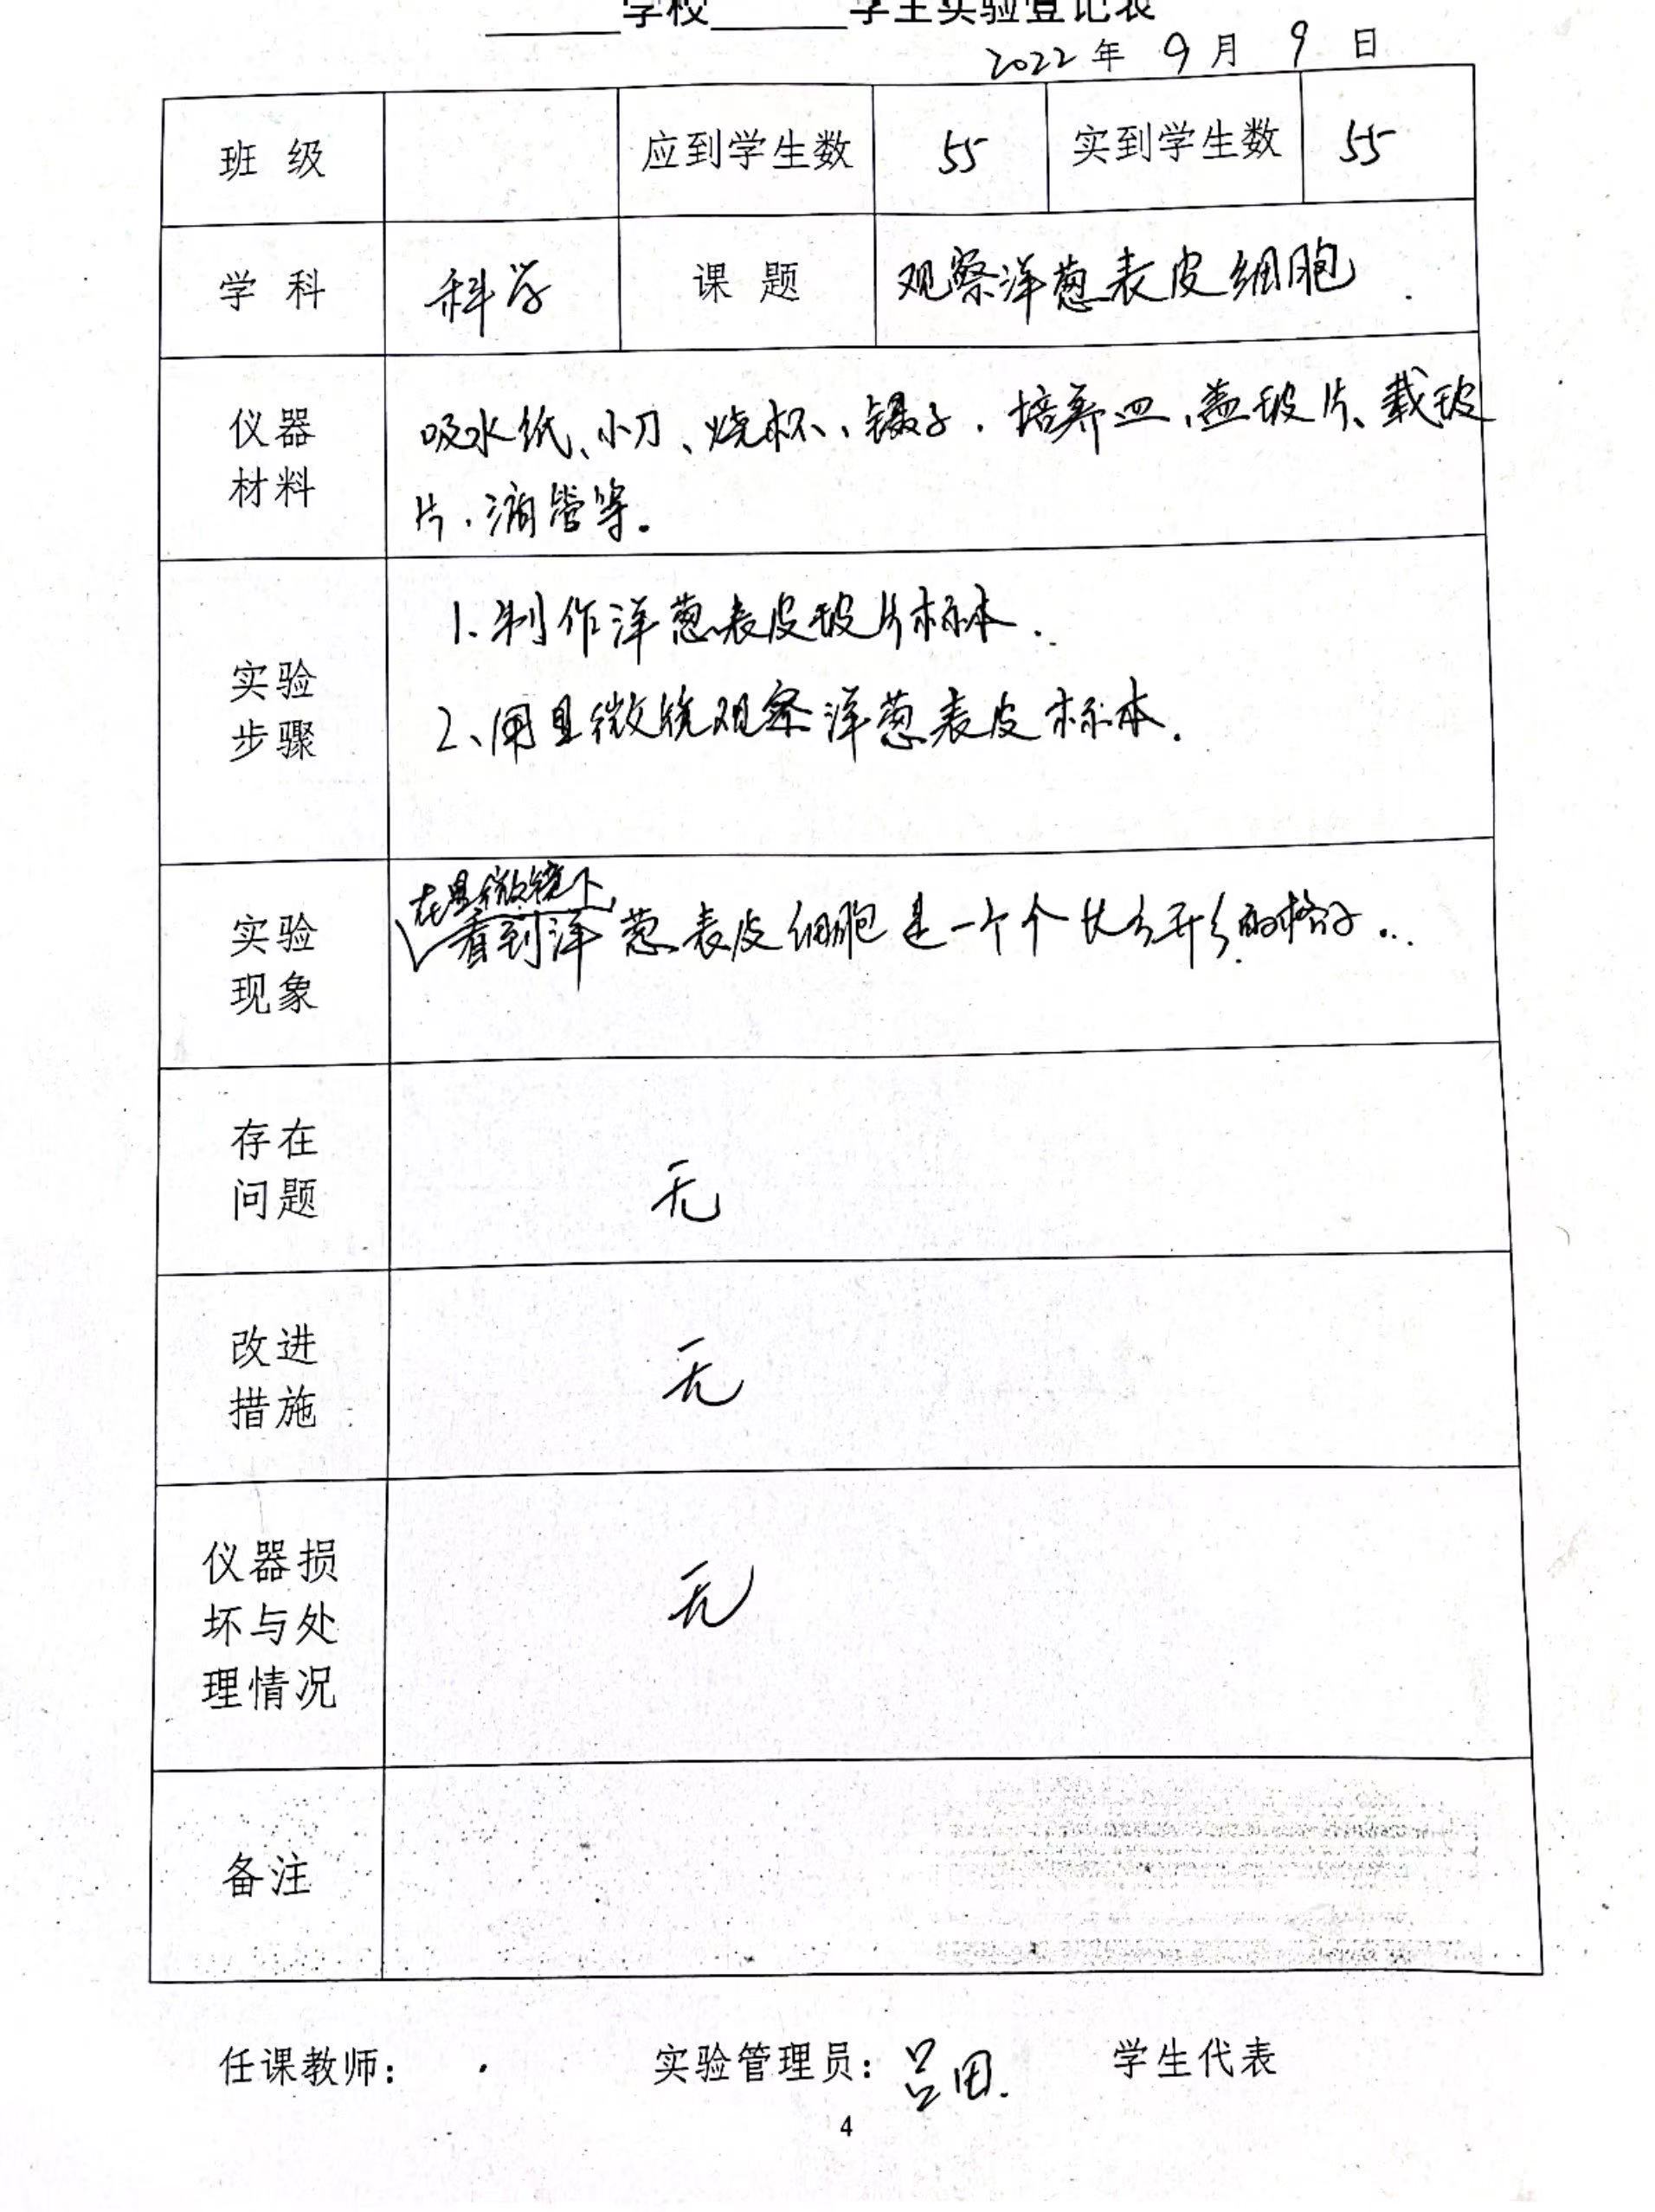 ______学校______学生实验登记表
2022年 9月 9日
班 级 应到学生数 55 实到学生数 55
学 科 科学 课 题 观察洋葱表皮细胞.
仪器
材料
吸水纸、小刀、烧杯、镊子、培养皿、盖玻片、载玻
片、滴管等。
实验
步骤
1、制作洋葱表皮玻片标本.
2、用显微镜观察洋葱表皮标本.
实验
现象
在显微镜下,
看到洋葱表皮细胞是一个个长方形的格子...
存在
问题
无
改进
措施
无
仪器损
坏与处
理情况
无
备注
任课教师: 实验管理员: 吕田. 学生代表
4